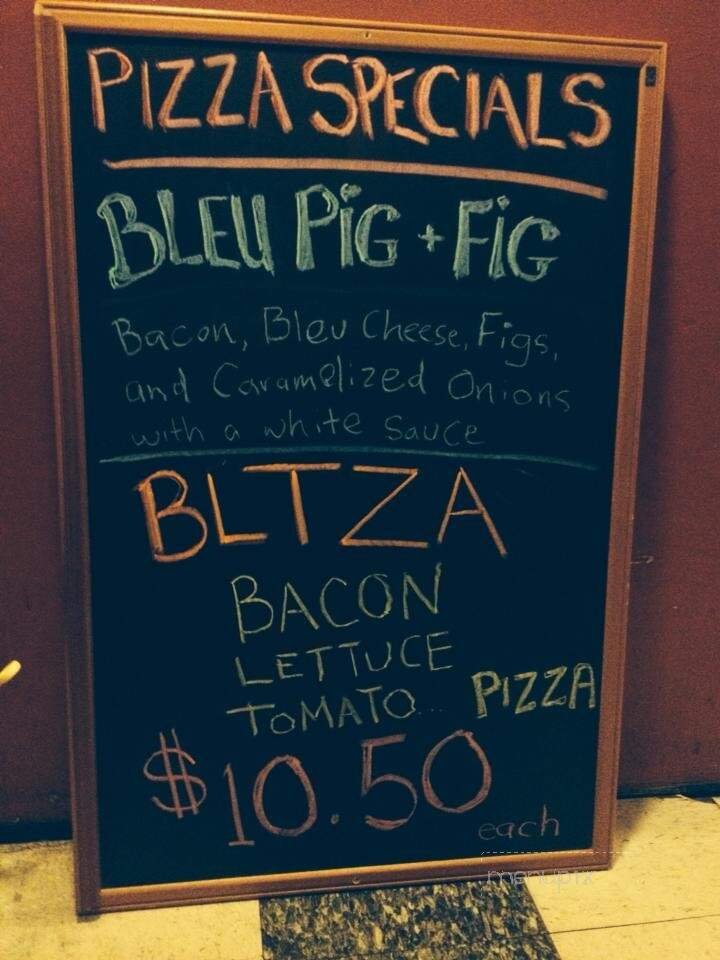 PIZZA SPECIALS
BLEU PiG + FiG
Bacon, Bleu Cheese, Figs,
and Caramelized Onions
with a white Sauce
BLTZA
BACON
LETTUCE
ToMATO... PIZZA
$10.50
each
menupix